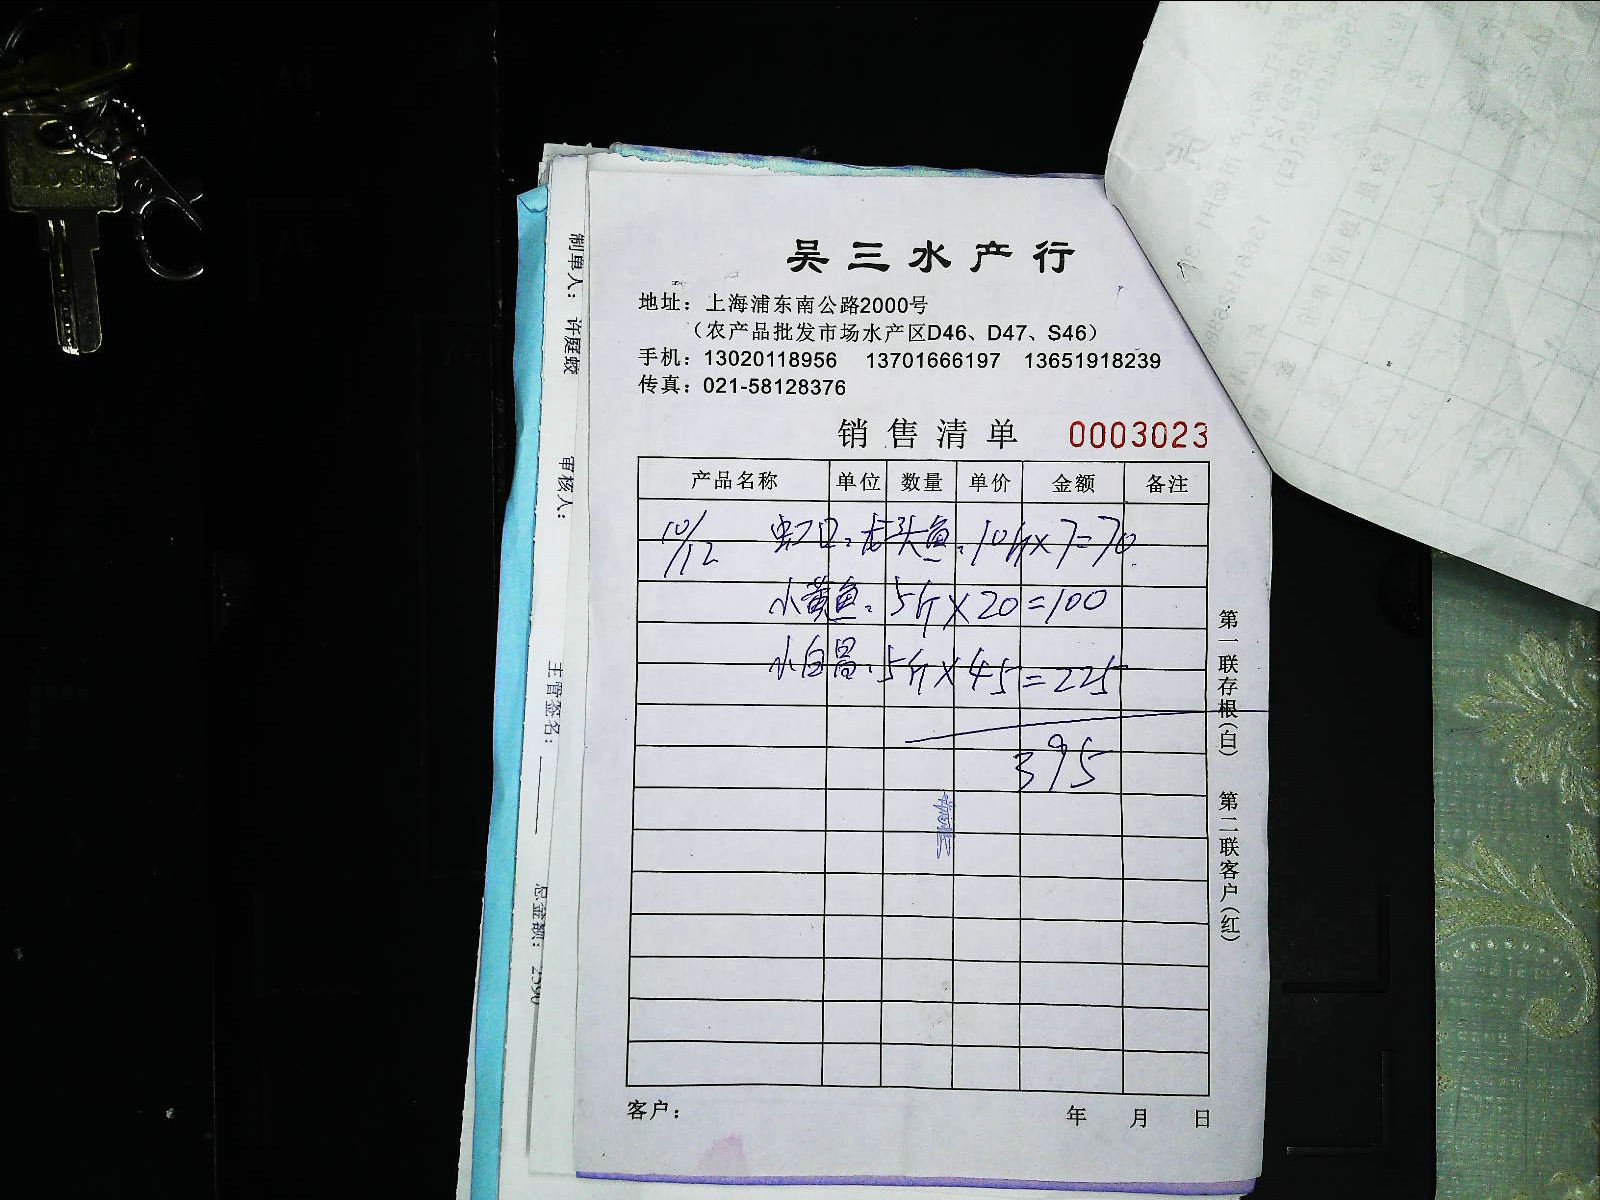 吴三水产行
地址：上海浦东南公路2000号
（农产品批发市场水产区D46、D47、S46）
手机：13020118956 13701666197 13651918239
传真：021-58128376
销售清单 0003023
产品名称 单位 数量 单价 金额 备注
10/12 虹口：龙头鱼：10斤×7=70
小黄鱼：5斤×20=100
小白昌：5斤×45=225
395
客户： 年 月 日
第一联存根（白） 第二联客户（红）
制单人： 许庭蛟 审核人： 主管签名： 总金额：